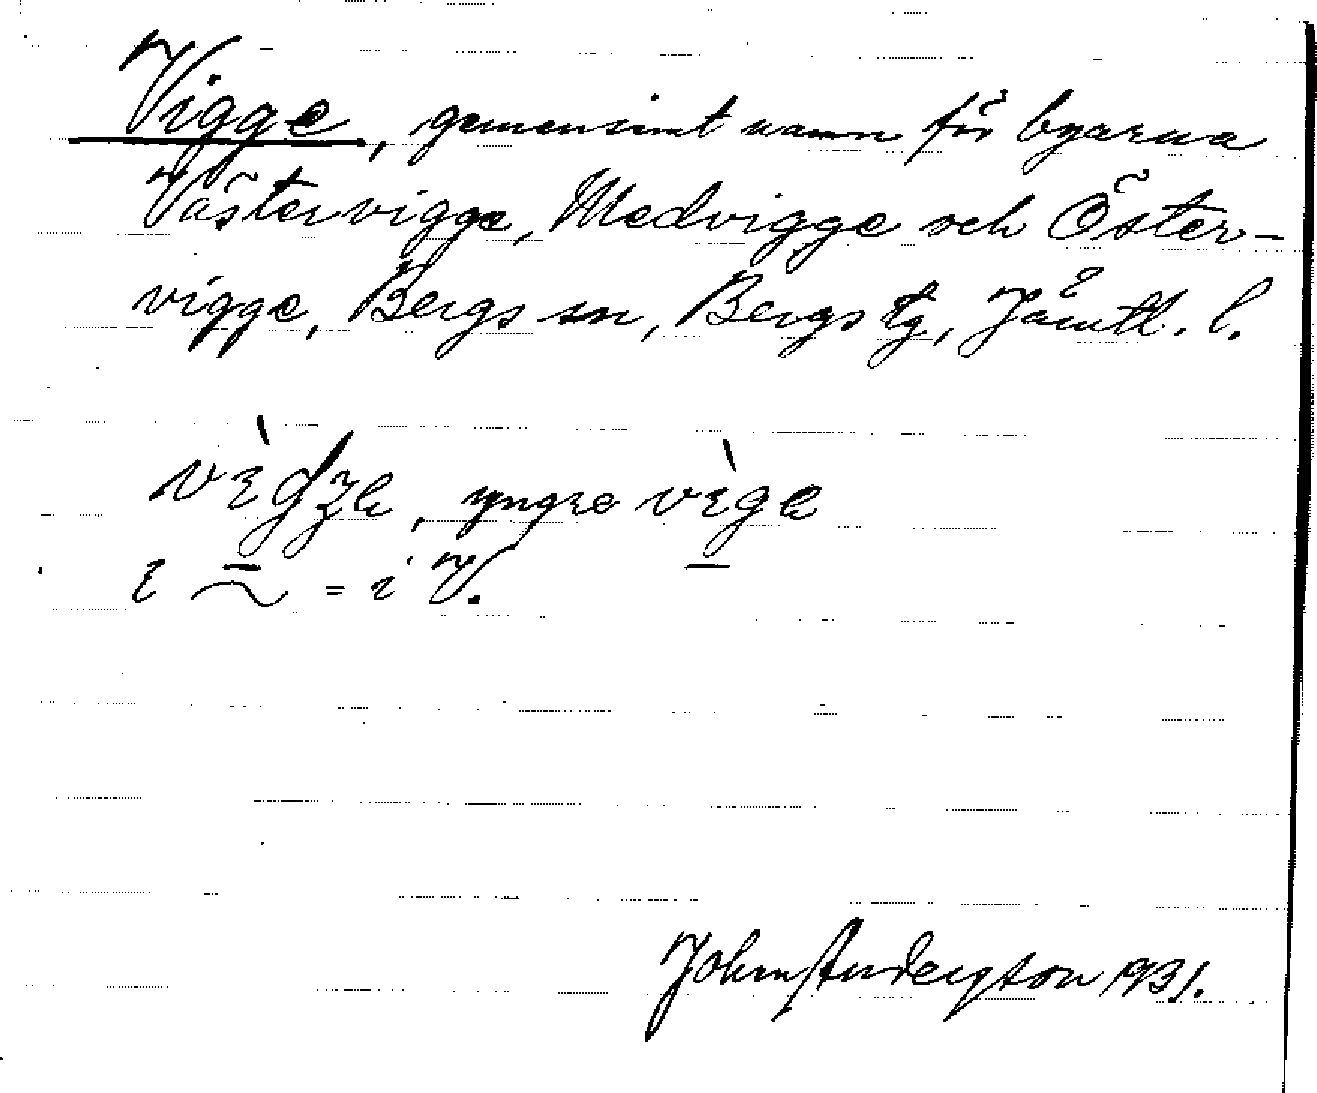 Vigge, gemensamt namn för byarna
Västervigge, Medvigge och Öster-
vigge, Bergs sn, Bergs tg, Jämtl. l.
yngre
= i V.
John Anderson 1931.